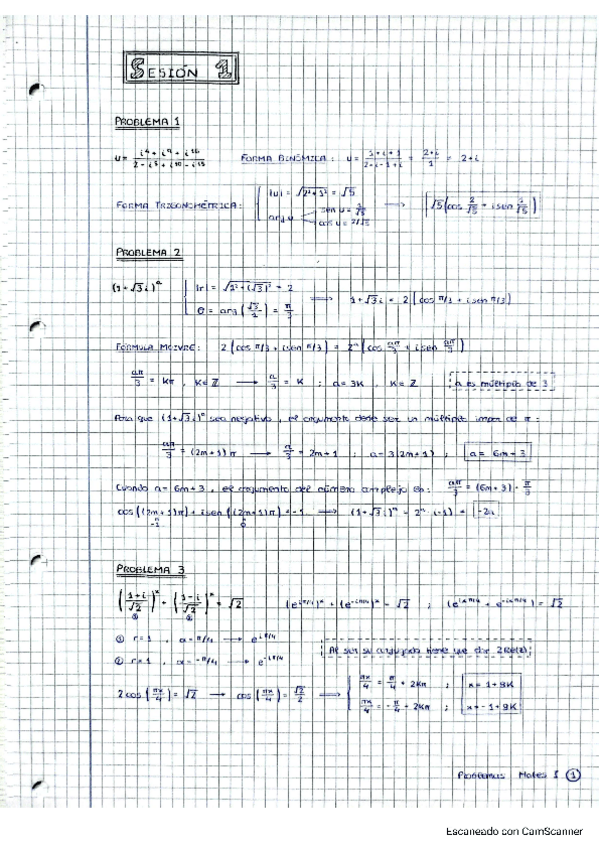 SESIÓN 1
PROBLEMA 1
u = (i⁴ + i⁹ + i¹⁶) / (2 - i⁵ + i¹⁰ - i¹⁵) FORMA BINÓMICA: u = (1 + i + 1) / (2 - i - 1 + i) = (2+i)/1 = 2+i
FORMA TRIGONOMÉTRICA: { |u| = √(2²+1²) = √5
arg u < sen u = 1/√5
cos u = 2/√5 → √5 (cos 2/√5 + i sen 1/√5)
PROBLEMA 2
(1+√3 i)ⁿ { |r| = √(1²+(√3)²) = 2
θ = arg (√3/1) = π/3 ⟹ 1+√3 i = 2 (cos π/3 + i sen π/3)
FÓRMULA MOIVRE: 2 (cos π/3 + i sen π/3) = 2ⁿ (cos nπ/3 + i sen nπ/3)
nπ/3 = Kπ, K∈Z → n/3 = K ; n = 3K, K∈Z n es múltiplo de 3
Para que (1+√3 i)ⁿ sea negativo, el argumento debe ser un múltiplo impar de π:
nπ/3 = (2m+1)π → n/3 = 2m+1 ; n = 3(2m+1) ; n = 6m+3
Cuando n = 6m+3, el argumento del número complejo es: nπ/3 = (6m+3)·π/3
cos((2m+1)π) + i sen((2m+1)π) = -1 → (1+√3 i)ⁿ = 2ⁿ (-1) = -2ⁿ
-1 0
PROBLEMA 3
((1+i)/√2)ˣ + ((1-i)/√2)ˣ = √2 (e^(iπ/4))ˣ + (e^(-iπ/4))ˣ = √2 ; (e^(ixπ/4) + e^(-ixπ/4)) = √2
① ②
① r=1, α = π/4 → e^(iπ/4)
② r=1, α = -π/4 → e^(-iπ/4) Al ser su conjugado tiene que dar 2Re(z);
2 cos (πx/4) = √2 → cos (πx/4) = √2/2 ⟹ { πx/4 = π/4 + 2Kπ ; x = 1+8K
πx/4 = -π/4 + 2Kπ ; x = -1+8K
Problemas Mates I ①
Escaneado con CamScanner